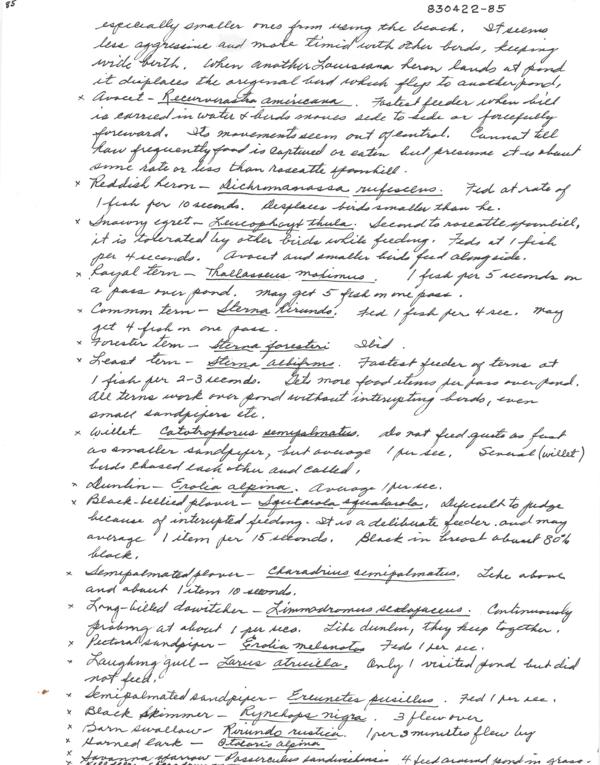 85
830422-85
especially smaller ones from using the beach. It seems
less aggressive and more timid with other birds, keeping
wide berth. When another Louisiana heron lands at pond
it displaces the original bird which flys to another pond,
x Avocet - Recurvirostra americana. Fastest feeder when bill
is carried in water & birds moves side to side or forcefully
foreward. Its movements seem out of control. Cannot tell
how frequently food is captured or eaten but presume it is about
same rate or less than roseatte spoonbill.
x Reddish heron - Dichromanassa rufescens. Fed at rate of
1 fish per 10 seconds. Desplaces birds smaller than he.
x Snowy egret - Leucophoyx thula. Second to roseatte spoonbill,
it is tolerated by other birds while feeding. Feds at 1 fish
per 4 seconds. Avocet and smaller birds feed alongside.
x Royal tern - Thallasseus maximus. 1 fish per 5 seconds on
a pass over pond. May get 5 fish on one pass.
x Common tern - Sterna hirundo. Fed 1 fish per 4 sec. May
get 4 fish on one pass.
x Forester tern - Sterna foresteri Ibid.
x Least tern - Sterna albifrons. Fastest feeder of terns at
1 fish per 2-3 seconds. Gets more food items per pass over pond.
All terns work over pond without interupting birds, even
small sandpipers etc.
x Willet Catotrophorus semipalmatus. Do not feed quite as fast
as smaller sandpiper, but average 1 per sec. Several (willet)
birds chased each other and called.
x Dunlin - Erolia alpina. Average 1 per sec.
x Black-bellied plover - Squtarola squatarola. Difficult to judge
because of interupted feeding. It is a deliberate feeder and may
average 1 item per 15 seconds. Black in breast about 80%
black.
x Semipalmated plover - Charadrius semipalmatus. Like above
and about 1 item 10 seconds.
x Long-billed dowitcher - Limnodromus scolopaceus. Continuously
probing at about 1 per sec. Like dunlin, they keep together.
x Pectoral sandpiper - Erolia melanotos Feds 1 per sec.
x Laughing gull - Larus atricilla. Only 1 visited pond but did
not feed.
x Semipalmated sandpiper - Ereunetes pusillus. Fed 1 per sec.
x Black Skimmer - Rynchops nigra. 3 flew over
x Barn swallow - Hirundo rustica. 1 per 3 minutes flew by
x Horned lark - Otocoris alpina
x Savanna sparrow - Passerculus sandwichensis 4 feed around pond in grass-